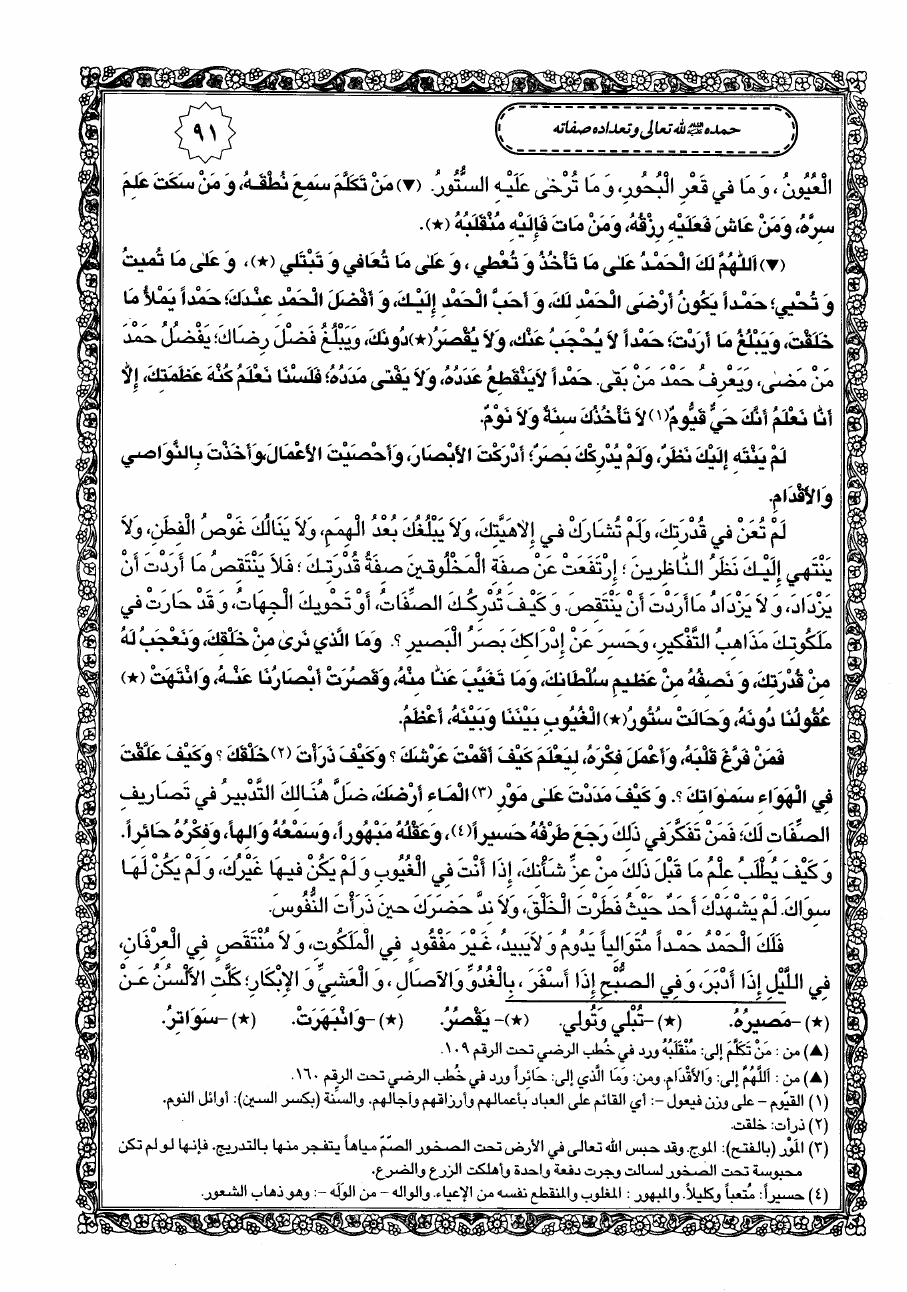 حمده ﷺ لله تعالى وتعداده صفاته
٩١
الْعُيُونُ، وَ مَا في قَعْرِ الْبُحُورِ، وَ مَا تُرْخىٰ عَلَيْهِ السُّتُورُ. (▼) مَنْ تَكَلَّمَ سَمِعَ نُطْقَهُ، وَ مَنْ سَكَتَ عَلِمَ
سِرَّهُ، وَمَنْ عَاشَ فَعَلَيْهِ رِزْقُهُ، وَمَنْ مَاتَ فَإِلَيْهِ مُنْقَلَبُهُ (★).
(▼) اَللّٰهُمَّ لَكَ الْحَمْدُ عَلىٰ مَا تَأْخُذُ وَ تُعْطي، وَ عَلىٰ مَا تُعَافي وَ تَبْتَلي (★)، وَ عَلىٰ مَا تُميتُ
وَ تُحْيي؛ حَمْداً يَكُونُ أَرْضَى الْحَمْدِ لَكَ، وَ أَحَبَّ الْحَمْدِ إِلَيْكَ، وَ أَفْضَلَ الْحَمْدِ عِنْدَكَ؛ حَمْداً يَمْلَأُ مَا
خَلَقْتَ، وَيَبْلُغُ مَا أَرَدْتَ؛ حَمْداً لاَ يُحْجَبُ عَنْكَ، وَلاَ يُقْصَرُ (★) دُونَكَ، وَيَبْلُغُ فَضْلَ رِضَاكَ؛ يَفْضُلُ حَمْدَ
مَنْ مَضىٰ، وَيَعْرِفُ حَمْدَ مَنْ بَقِيَ. حَمْداً لاَيَنْقَطِعُ عَدَدُهُ، وَلاَ يَفْنىٰ مَدَدُهُ؛ فَلَسْنَا نَعْلَمُ كُنْهَ عَظَمَتِكَ، إِلاَّ
أَنَّا نَعْلَمُ أَنَّكَ حَيٌّ قَيُّومٌ (١) لاَ تَأْخُذُكَ سِنَةٌ وَلاَ نَوْمٌ.
لَمْ يَنْتَهِ إِلَيْكَ نَظَرٌ، وَلَمْ يُدْرِكْكَ بَصَرٌ؛ أَدْرَكْتَ الأَبْصَارَ، وَأَحْصَيْتَ الأَعْمَالَ، وَأَخَذْتَ بِالنَّوَاصي
وَالأَقْدَامِ.
لَمْ تُعَنْ في قُدْرَتِكَ، وَلَمْ تُشَارَكْ في إِلاٰهِيَّتِكَ، وَلاَ يَبْلُغُكَ بُعْدُ الْهِمَمِ، وَلاَ يَنَالُكَ غَوْصُ الْفِطَنِ، وَلاَ
يَنْتَهي إِلَيْكَ نَظَرُ النَّاظِرينَ؛ اِرْتَفَعَتْ عَنْ صِفَةِ الْمَخْلُوقينَ صِفَةُ قُدْرَتِكَ؛ فَلاَ يَنْتَقِصُ مَا أَرَدْتَ أَنْ
يَزْدَادَ، وَ لاَ يَزْدَادُ مَا أَرَدْتَ أَنْ يَنْتَقِصَ. وَ كَيْفَ تُدْرِكُكَ الصِّفَاتُ، أَوْ تَحْويكَ الْجِهَاتُ، وَ قَدْ حَارَتْ في
مَلَكُوتِكَ مَذَاهِبُ التَّفْكيرِ، وَحَسِرَ عَنْ إِدْرَاكِكَ بَصَرُ الْبَصيرِ؟. وَمَا الَّذي نَرىٰ مِنْ خَلْقِكَ، وَنَعْجَبُ لَهُ
مِنْ قُدْرَتِكَ، وَ نَصِفُهُ مِنْ عَظيمِ سُلْطَانِكَ، وَمَا تَغَيَّبَ عَنَّا مِنْهُ، وَقَصُرَتْ أَبْصَارُنَا عَنْهُ، وَانْتَهَتْ (★)
عُقُولُنَا دُونَهُ، وَحَالَتْ سُتُورُ (★) الْغُيُوبِ بَيْنَنَا وَبَيْنَهُ، أَعْظَمُ.
فَمَنْ فَرَّغَ قَلْبَهُ، وَأَعْمَلَ فِكْرَهُ، لِيَعْلَمَ كَيْفَ أَقَمْتَ عَرْشَكَ؟ وَكَيْفَ ذَرَأْتَ (٢) خَلْقَكَ؟ وَكَيْفَ عَلَّقْتَ
فِي الْهَوَاءِ سَمٰوَاتِكَ؟. وَ كَيْفَ مَدَدْتَ عَلىٰ مَوْرِ (٣) الْمَاءِ أَرْضَكَ، ضَلَّ هُنَالِكَ التَّدْبيرُ في تَصَاريفِ
الصِّفَاتِ لَكَ؛ فَمَنْ تَفَكَّرَ في ذٰلِكَ رَجَعَ طَرْفُهُ حَسيراً (٤)، وَعَقْلُهُ مَبْهُوراً، وَسَمْعُهُ وَالِهاً، وَفِكْرُهُ حَائِراً.
وَ كَيْفَ يُطْلَبُ عِلْمُ مَا قَبْلَ ذٰلِكَ مِنْ عِزِّ شَأْنِكَ، إِذَا أَنْتَ فِي الْغُيُوبِ وَ لَمْ يَكُنْ فيهَا غَيْرُكَ، وَ لَمْ يَكُنْ لَهَا
سِوَاكَ. لَمْ يَشْهَدْكَ أَحَدٌ حَيْثُ فَطَرْتَ الْخَلْقَ، وَلاَ نِدٌّ حَضَرَكَ حينَ ذَرَأْتَ النُّفُوسَ.
فَلَكَ الْحَمْدُ حَمْداً مُتَوَالِياً يَدُومُ وَ لاَيَبيدُ، غَيْرَ مَفْقُودٍ فِي الْمَلَكُوتِ، وَ لاَ مُنْتَقَصٍ فِي الْعِرْفَانِ،
فِي اللَّيْلِ إِذَا أَدْبَرَ، وَفِي الصُّبْحِ إِذَا أَسْفَرَ، بِالْغُدُوِّ وَالآصَالِ، وَ الْعَشِيِّ وَ الإِبْكَارِ؛ كَلَّتِ الأَلْسُنُ عَنْ
(★)-مَصيرُهُ. (★)-تُبْلي وَتُولي. (★)-يَقْصُرُ. (★)-وَانْبَهَرَتْ. (★)-سَوَاتِرُ.
(▲) من: مَنْ تَكَلَّمَ إلى: مُنْقَلَبُهُ ورد في خُطب الرضي تحت الرقم ١٠٩.
(▲) من: اَللّٰهُمَّ إلى: وَالأَقْدَامِ. ومن: وَمَا الَّذي إلى: حَائِراً ورد في خُطب الرضي تحت الرقم ١٦٠.
(١) القيّوم - على وزن فيعول -: أي القائم على العباد بأعمالهم وأرزاقهم وآجالهم. والسِّنة (بكسر السين): أوائل النوم.
(٢) ذرأت: خلقت.
(٣) المَوْر (بالفتح): الموج. وقد حبس الله تعالى في الأرض تحت الصخور الصمّ مياهاً يتفجر منها بالتدريج. فإنها لو لم تكن
محبوسة تحت الصخور لسالت وجرت دفعة واحدة وأهلكت الزرع والضرع.
(٤) حسيراً: مُتعباً وكليلاً. والمبهور: المغلوب والمنقطع نفسه من الإعياء. والواله - من الولَه -: وهو ذهاب الشعور.